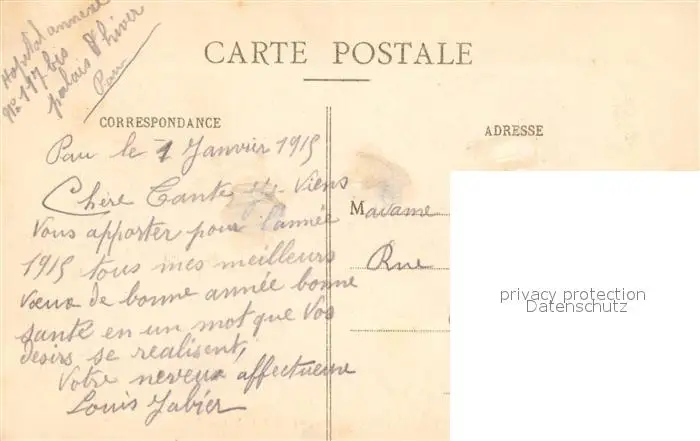 Hopital annexe
No 117 bis
palais d'hiver
Pau
CARTE POSTALE
CORRESPONDANCE
ADRESSE
Pau le 1 Janvier 1915
Chère Tante Viens
Vous apporter pour l'année
1915 tous mes meilleurs
vœux de bonne année bonne
santé en un mot que Vos
desirs se realisent,
Votre neveux affectueux
Louis
Madame
Rue
privacy protection
Datenschutz